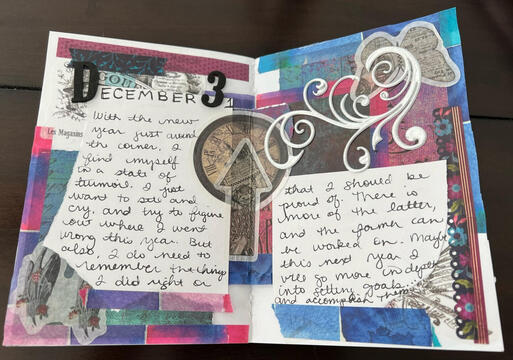 GOU
DECEMBER 31
Les Magasins
With the new
year just around
the corner, I
find myself
in a state of
turmoil. I just
want to sit and
cry, and try to figure
out where I went
wrong this year. But
also, I do need to
remember the things
I did right or
that I should be
proud of. There is
more of the latter,
and the former can
be worked on. Maybe
this next year I
will go more in depth
into setting goals
and accomplish them.